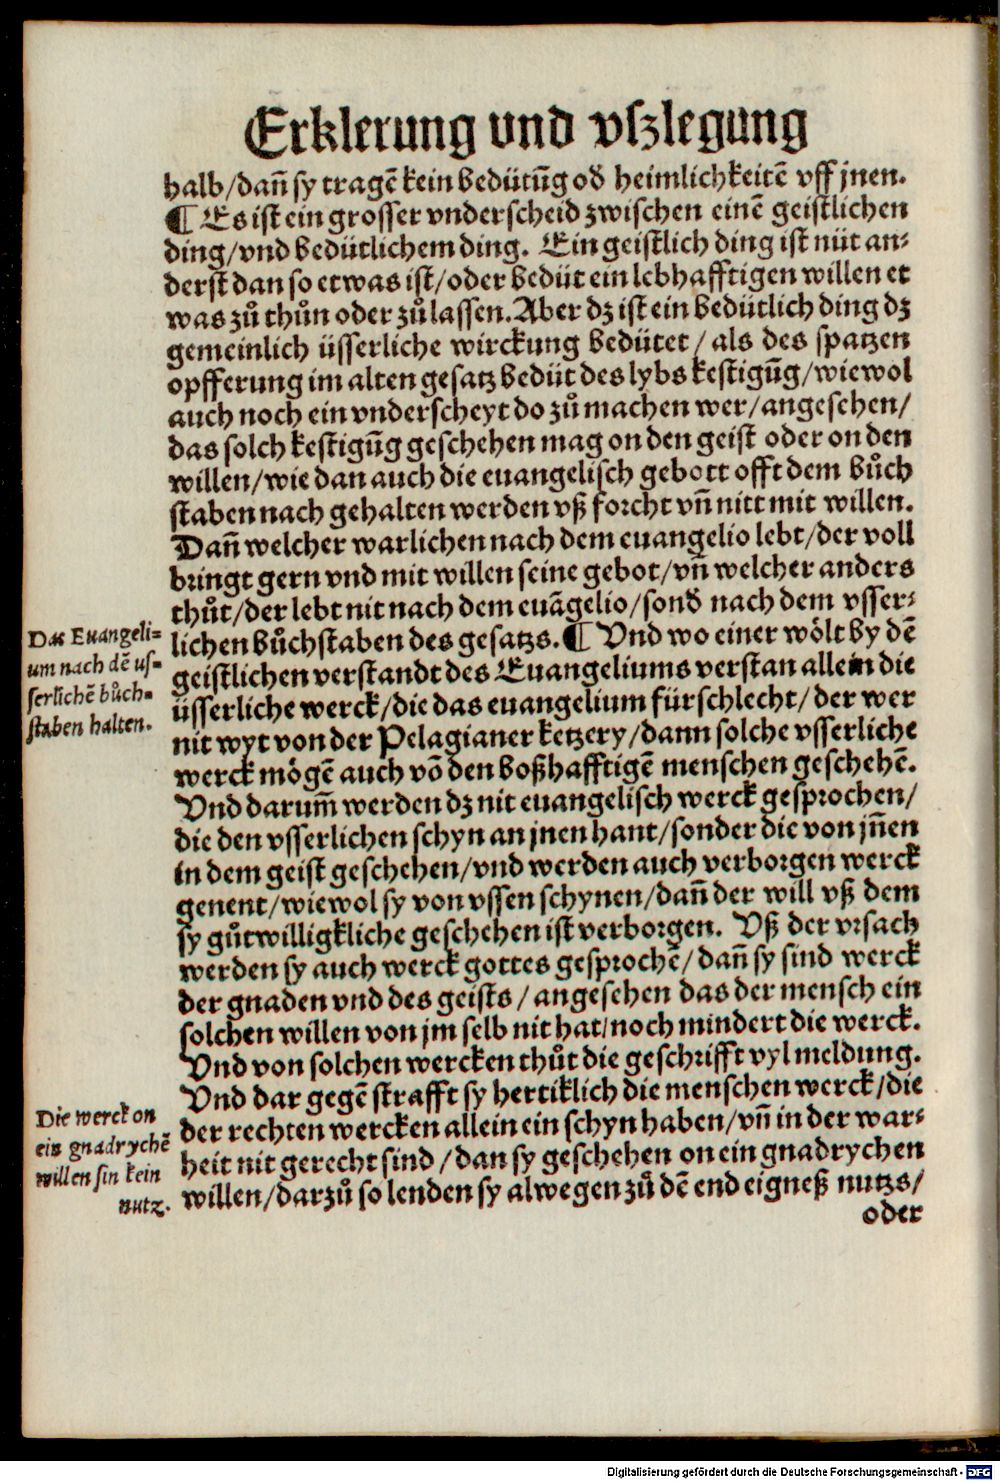 Erklerung vnd vſzlegung
halb/dañ ſy tragē kein bedütūg oď heimlichkeitē vff jnen.
¶ Es iſt ein groſſer vnderſcheid zwiſchen einē geiſtlichen
ding/vnd bedütlichem ding. Ein geiſtlich ding iſt nüt an⸗
derſt dan ſo etwas iſt/oder bedüt ein lebhafftigen willen et
was zů thůn oder zů laſſen. Aber dz iſt ein bedütlich ding dz
gemeinlich üſſerliche wirckung bedütet/ als des ſpatzen
opfferung im alten geſatz bedüt des lybs keſtigūg/wiewol
auch noch ein vnderſcheyt do zů machen wer/angeſehen/
das ſolch keſtigūg geſchehen mag on den geiſt oder on den
willen/wie dan auch die euangeliſch gebott offt dem bůch
ſtaben nach gehalten werden vß forcht vñ nitt mit willen.
Dañ welcher warlichen nach dem euangelio lebt/der voll
bringt gern vnd mit willen ſeine gebot/vñ welcher anders
thůt/der lebt nit nach dem euāgelio/ſonď nach dem vſſer⸗
Das Euangeli⸗
um nach dē uſ⸗
ſerlichē bůch⸗
ſtaben halten.
lichen bůchſtaben des geſatzs. ¶ Vnd wo einer wölt by dē
geiſtlichen verſtandt des Euangeliums verſtan allein die
üſſerliche werck/die das euangelium fürſchlecht/ der wer
nit wyt von der Pelagianer ketzery/dann ſolche vſſerliche
werck mögē auch vō den boßhafftigē menſchen geſchehē.
Vnd darum̄ werden dz nit euangeliſch werck geſprochen/
die den vſſerlichen ſchyn an jnen hant/ſonder die von jñen
in dem geiſt geſchehen/vnd werden auch verborgen werck
genent/wiewol ſy von vſſen ſchynen/dañ der will vß dem
ſy gůtwilligkliche geſchehen iſt verborgen. Vß der vrſach
werden ſy auch werck gottes geſprochē/dañ ſy ſind werck
der gnaden vnd des geiſts/ angeſehen das der menſch ein
ſolchen willen von jm ſelb nit hat/noch mindert die werck.
Vnd von ſolchen wercken thůt die geſchrifft vyl meldung.
Vnd dar gegē ſtrafft ſy hertiklich die menſchen werck/die
Die werck on
ein gnadrychē
willen ſin kein
nutz.
der rechten wercken allein ein ſchyn haben/vñ in der war⸗
heit nit gerecht ſind/dan ſy geſchehen on ein gnadrychen
willen/darzů ſo lenden ſy alwegen zů dē end eigneß nutzs/
oder
Digitalisierung gefördert durch die Deutsche Forschungsgemeinschaft - DFG